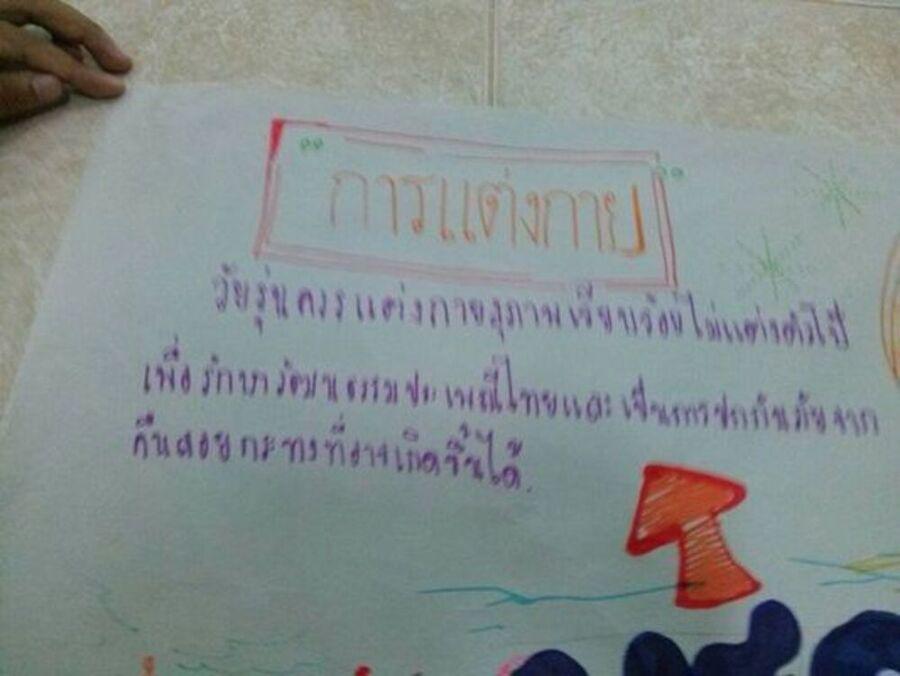 "การแต่งกาย"
วัยรุ่นควรแต่งกายสุภาพเรียบร้อยไม่แต่งตัวโป๊
เพื่อรักษาวัฒนธรรมประเพณีไทยและเป็นการปกกันภัยจาก
คืนลอยกระทงที่อาจเกิดขึ้นได้.